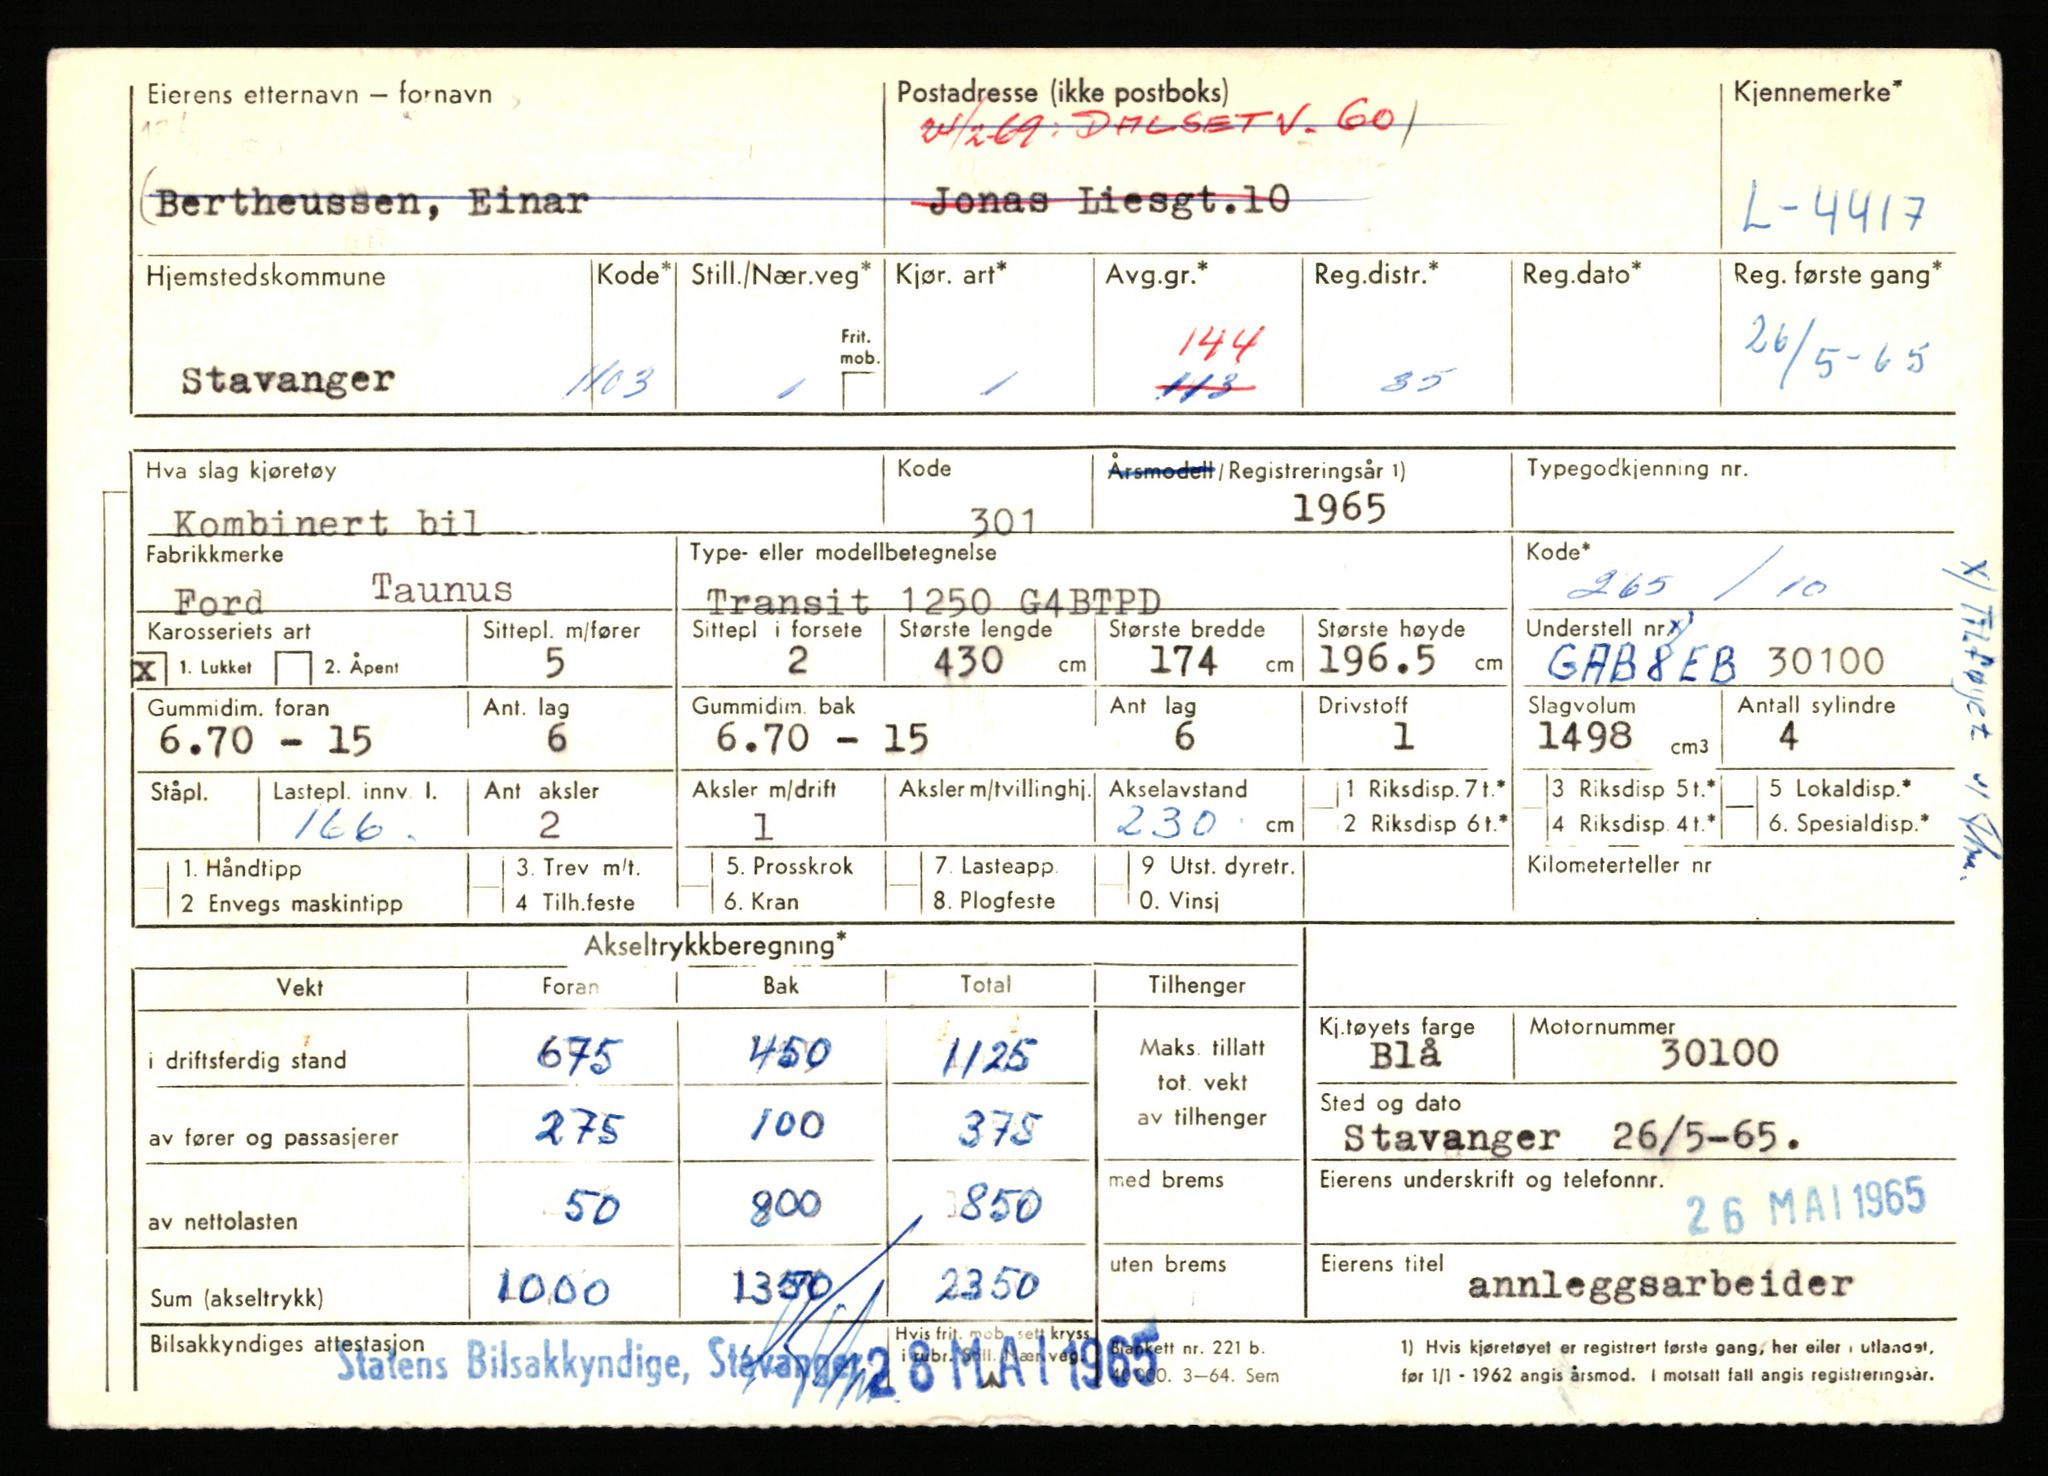 Eierens etternavn — fornavn Postadresse (ikke postboks) Kjennemerke*
24/2-69: DALSETV. 60)
(Bertheussen, Einar Jonas Liesgt.10 L-4417
Hjemstedskommune Kode* Still./Nær.veg* Kjør. art* Avg.gr.* Reg.distr.* Reg.dato* Reg. første gang*
Frit. mob. 144 26/5-65
Stavanger 1103 1 1 113 35
Hva slag kjøretøy Kode Årsmodell/Registreringsår 1) Typegodkjenning nr.
Kombinert bil 301 1965
Fabrikkmerke Type- eller modellbetegnelse Kode*
Ford Taunus Transit 1250 G4BTPD 265 / 10
Karosseriets art Sittepl. m/fører Sittepl i forsete Største lengde Største bredde Største høyde Understell nr. x)
X 1. Lukket 2. Åpent 5 2 430 cm 174 cm 196.5 cm GAB8EB 30100
Gummidim. foran Ant. lag Gummidim. bak Ant lag Drivstoff Slagvolum Antall sylindre
6.70 - 15 6 6.70 - 15 6 1 1498 cm3 4
Ståpl. Lastepl. innv. l. Ant aksler Aksler m/drift Aksler m/tvillinghj. Akselavstand 1 Riksdisp. 7 t.* 3 Riksdisp 5 t.* 5 Lokaldisp.*
166. 2 1 230 cm 2 Riksdisp 6 t.* 4 Riksdisp. 4 t.* 6. Spesialdisp.*
1. Håndtipp 3. Trev m/t. 5. Prosskrok 7. Lasteapp. 9 Utst. dyretr. Kilometerteller nr
2 Envegs maskintipp 4 Tilh.feste 6. Kran 8. Plogfeste 0. Vinsj
Akseltrykkberegning*
Vekt Foran Bak Total Tilhenger
i driftsferdig stand 675 450 1125 Maks. tillatt tot. vekt av tilhenger Kj.tøyets farge Motornummer
Blå 30100
av fører og passasjerer 275 100 375 Sted og dato
Stavanger 26/5-65.
av nettolasten 50 800 850 med brems Eierens underskrift og telefonnr.
26 MAI 1965
Sum (akseltrykk) 1000 1350 2350 uten brems Eierens titel
annleggsarbeider
Bilsakkyndiges attestasjon Hvis frit. mob. sett kryss i rubr. Still. Nær.veg. Blankett nr. 221 b. 1) Hvis kjøretøyet er registrert første gang, her eller i utlandet,
Statens Bilsakkyndige, Stavanger 28 MAI 1965 40 000. 3—64. Sem før 1/1 - 1962 angis årsmod. I motsatt fall angis registreringsår.